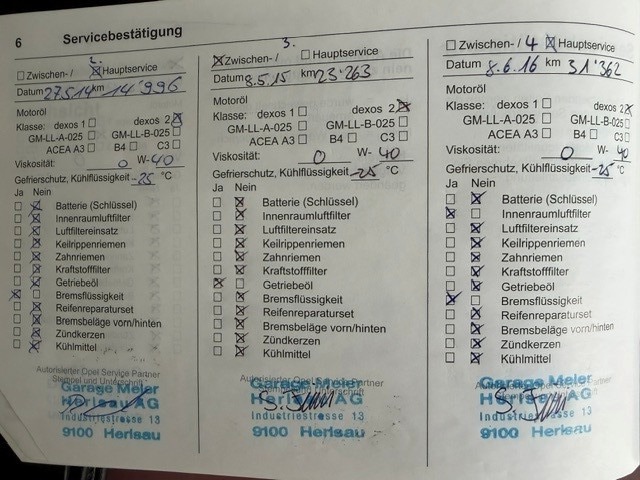 6 Servicebestätigung
2.
Zwischen- / Hauptservice
Datum 27.5.14 km 14'996
Motoröl
Klasse: dexos 1 dexos 2
GM-LL-A-025 GM-LL-B-025
ACEA A3 B4 C3
Viskosität: 0 W- 40
Gefrierschutz, Kühlflüssigkeit -25 °C
Ja Nein
Batterie (Schlüssel)
Innenraumluftfilter
Luftfiltereinsatz
Keilrippenriemen
Zahnriemen
Kraftstofffilter
Getriebeöl
Bremsflüssigkeit
Reifenreparaturset
Bremsbeläge vorn/hinten
Zündkerzen
Kühlmittel
Autorisierter Opel Service Partner
Stempel und Unterschrift
Garage Meier
Herisau AG
Industriestrasse 13
9100 Herisau
3.
Zwischen- / Hauptservice
Datum 8.5.15 km 23'263
Motoröl
Klasse: dexos 1 dexos 2
GM-LL-A-025 GM-LL-B-025
ACEA A3 B4 C3
Viskosität: 0 W- 40
Gefrierschutz, Kühlflüssigkeit -25 °C
Ja Nein
Batterie (Schlüssel)
Innenraumluftfilter
Luftfiltereinsatz
Keilrippenriemen
Zahnriemen
Kraftstofffilter
Getriebeöl
Bremsflüssigkeit
Reifenreparaturset
Bremsbeläge vorn/hinten
Zündkerzen
Kühlmittel
Autorisierter Opel Service Partner
Garage Meier
Herisau AG
Industriestrasse 13
9100 Herisau
Zwischen- / 4 Hauptservice
Datum 8.6.16 km 31'362
Motoröl
Klasse: dexos 1 dexos 2
GM-LL-A-025 GM-LL-B-025
ACEA A3 B4 C3
Viskosität: 0 W- 40
Gefrierschutz, Kühlflüssigkeit -25 °C
Ja Nein
Batterie (Schlüssel)
Innenraumluftfilter
Luftfiltereinsatz
Keilrippenriemen
Zahnriemen
Kraftstofffilter
Getriebeöl
Bremsflüssigkeit
Reifenreparaturset
Bremsbeläge vorn/hinten
Zündkerzen
Kühlmittel
Autorisierter Opel Service Partner
Garage Meier
Herisau AG
Industriestrasse 13
9100 Herisau